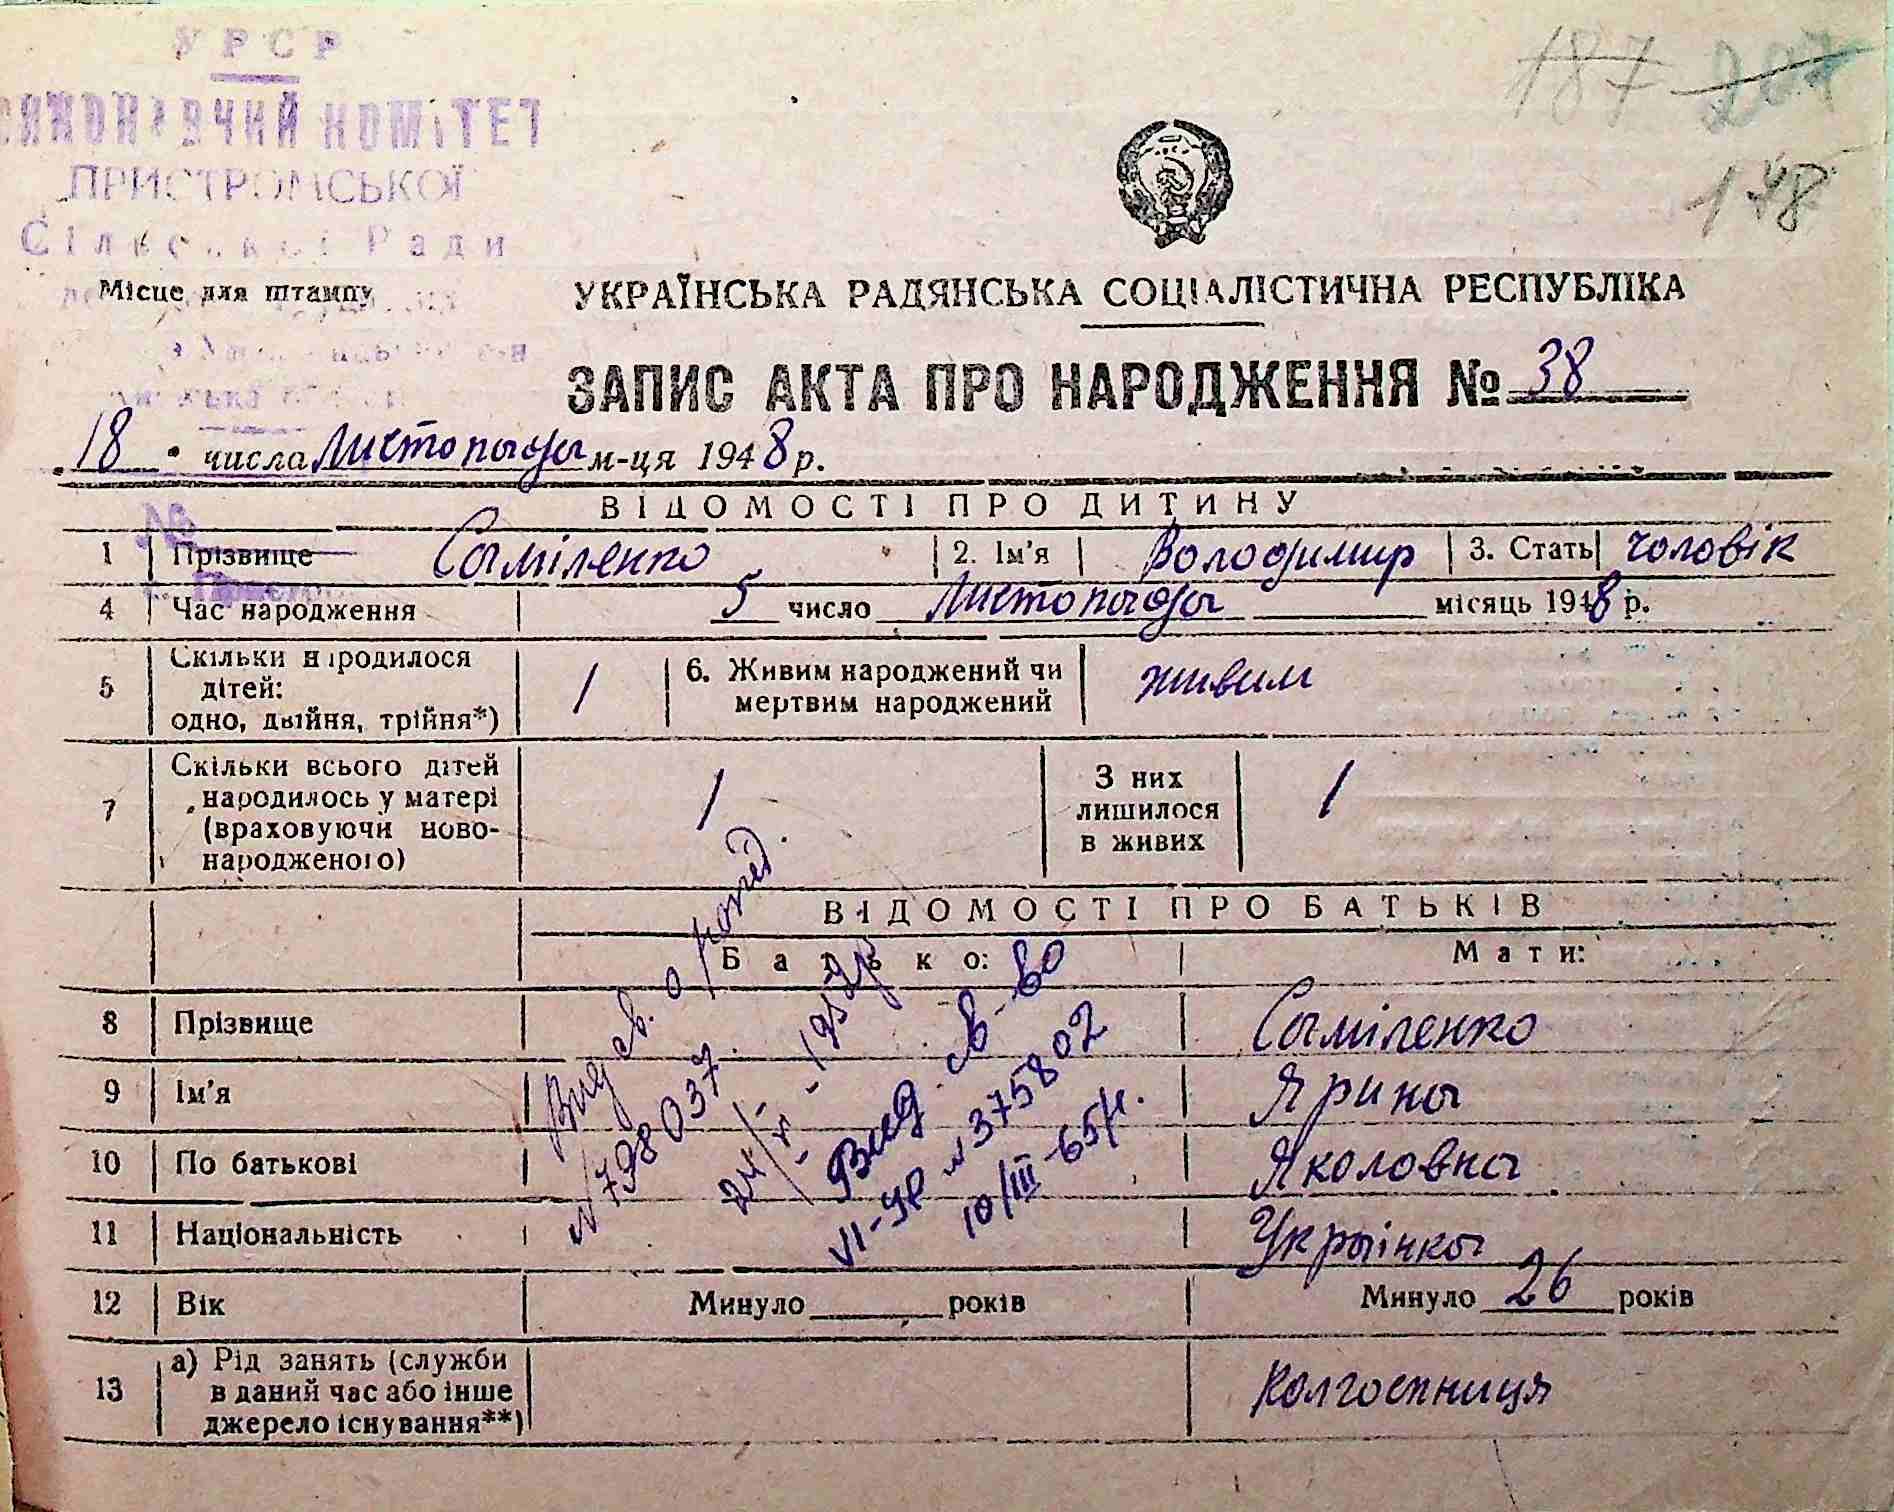 УРСР
КОМІТЕТ
ПРИСТРОМСЬКОЇ
Сільської Ради
187 207
148
Місце для штампу
УКРАЇНСЬКА РАДЯНСЬКА СОЦІАЛІСТИЧНА РЕСПУБЛІКА
ЗАПИС АКТА ПРО НАРОДЖЕННЯ № 38
18 числа Листопада м-ця 1948 р.
№
ВІДОМОСТІ ПРО ДИТИНУ
1 Прізвище Саміленко 2. Ім'я Володимир 3. Стать чоловік
4 Час народження 5 число Листопада місяць 1948 р.
5 Скільки народилося дітей: одно, двійня, трійня*) 1 6. Живим народжений чи мертвим народжений живим
7 Скільки всього дітей народилось у матері (враховуючи ново-народженого) 1 З них лишилося в живих 1
ВІДОМОСТІ ПРО БАТЬКІВ
Батько: Мати:
8 Прізвище Саміленко
9 Ім'я Ярина
10 По батькові Яколовна
11 Національність Украінка
12 Вік Минуло років Минуло 26 років
13 а) Рід занять (служби в даний час або інше джерело існування**) колгоспниця
Вид св. о
№798037.
Вид. св-во
VI-УР № 375802
10/III-65р.